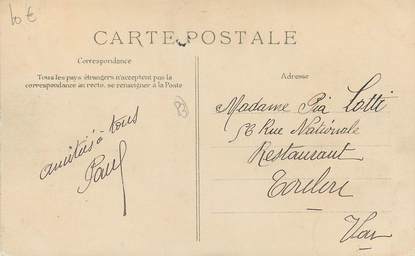 10 €
CARTE POSTALE
Correspondance
Tous les pays étrangers n'acceptent pas la
correspondance au recto, se renseigner à la Poste
Adresse
83
amitiés à tous
Paul
Madame Pia Lotti
58 Rue Nationale
Restaurant
Toulon
Var